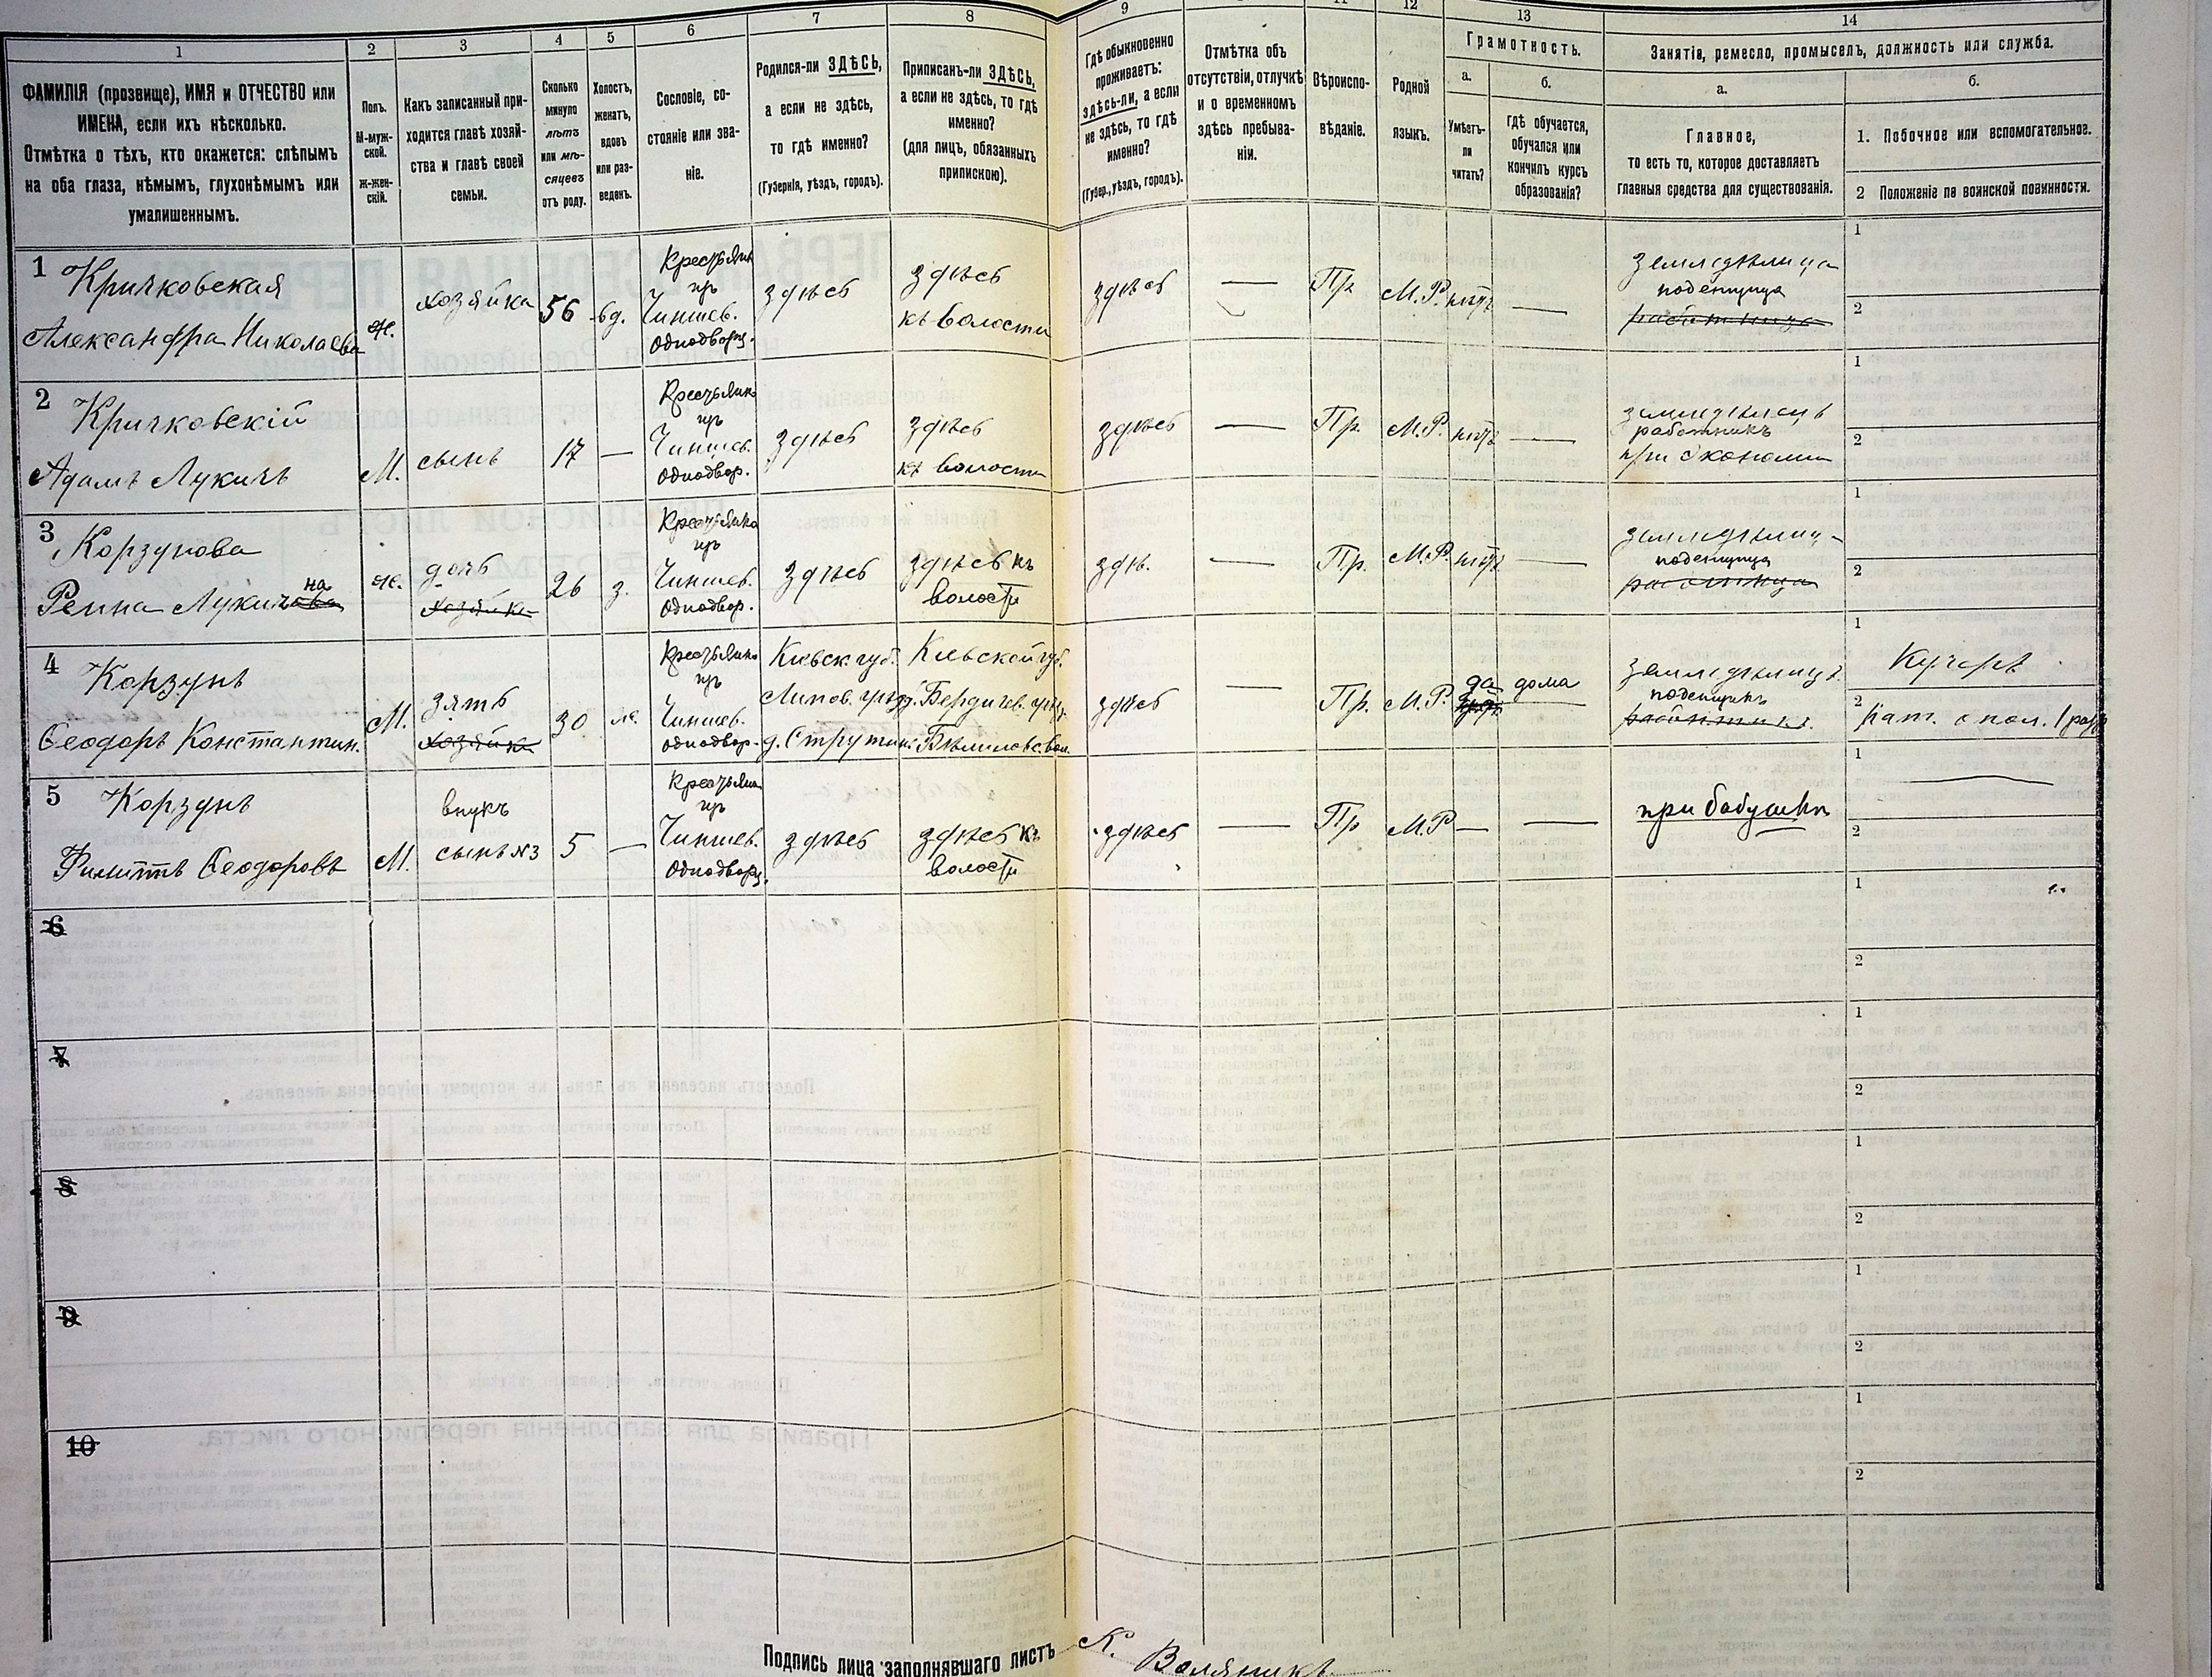 1
ФАМИЛІЯ (прозвище), ИМЯ и ОТЧЕСТВО или
ИМЕНА, если ихъ нѣсколько.
Отмѣтка о тѣхъ, кто окажется: слѣпымъ
на оба глаза, нѣмымъ, глухонѣмымъ или
умалишеннымъ.
2
Полъ.
М-муж-
ской.
ж-жен-
скій.
3
Какъ записанный при-
ходится главѣ хозяй-
ства и главѣ своей
семьи.
4
Сколько
минуло
лѣтъ
или мѣ-
сяцевъ
отъ роду.
5
Холостъ,
женатъ,
вдовъ
или раз-
веденъ.
6
Сословіе, со-
стояніе или зва-
ніе.
7
Родился-ли ЗДѢСЬ,
а если не здѣсь,
то гдѣ именно?
(Губернія, уѣздъ, городъ).
8
Приписанъ-ли ЗДѢСЬ,
а если не здѣсь, то гдѣ
именно?
(для лицъ, обязанныхъ
припискою).
9
Гдѣ обыкновенно
проживаетъ:
здѣсь-ли, а если
не здѣсь, то гдѣ
именно?
(Губер., уѣздъ, городъ).
Отмѣтка объ
отсутствіи, отлучкѣ
и о временномъ
здѣсь пребыва-
ніи.
Вѣроиспо-
вѣданіе.
12
Родной
языкъ.
13
Грамотность.
а.
Умѣетъ-
ли
читать?
б.
гдѣ обучается,
обучался или
кончилъ курсъ
образованія?
14
Занятія, ремесло, промыселъ, должность или служба.
а.
Главное,
то есть то, которое доставляетъ
главныя средства для существованія.
б.
1. Побочное или вспомогательное.
2 Положеніе по воинской повинности.
1 Кричковская
Александра Николаева
ж.
хозяйка
56
вд.
Крестьян
пр
Чиншев.
однодворц.
здѣсь
здѣсь
къ волости
здѣсь
—
Пр
М.Р.
нѣтъ
—
земледѣлица
поденщица
работница
1
2
2 Кричковскій
Адамъ Лукичъ
М.
сынъ
17
—
Крестьянъ
пр
Чиншев.
однодвор.
здѣсь
здѣсь
къ волости
здѣсь
—
Пр.
М.Р.
нѣтъ
—
земледѣлецъ
работникъ
при экономіи
1
2
3 Корзунова
на
Лукичева
ж.
дочь
хозяйки
26
з.
Крестьянка
пр
Чиншев.
однодвор.
здѣсь
здѣсь къ
волости
здѣ.
—
Пр.
М.Р.
нѣтъ
—
поденщица
работница
1
2
4 Корзунъ
Ѳеодоръ Константин.
М.
зять
хозяйки
30
ж.
Крестьянъ
пр
Чиншев.
однодвор.
Кіевск. губ.
Липов. уѣзд.
Кіевской губ.
Бердичев. уѣзд.
здѣсь
—
Пр.
М.Р.
да
дома
земледѣлецъ
поденщикъ
работникъ
1 Кучеръ
2
5 Корзунъ
Филиппъ Ѳеодоровъ
М.
внукъ
сынъ №3
5
—
Крестьян
пр
Чиншев.
однодворц.
здѣсь
здѣсь къ
волости
здѣсь
—
Пр
М.Р
—
—
при бабушкѣ
1
2
6
1
2
7
1
2
8
1
2
9
1
2
10
1
2
Подпись лица заполнявшаго листъ К. Воляникъ